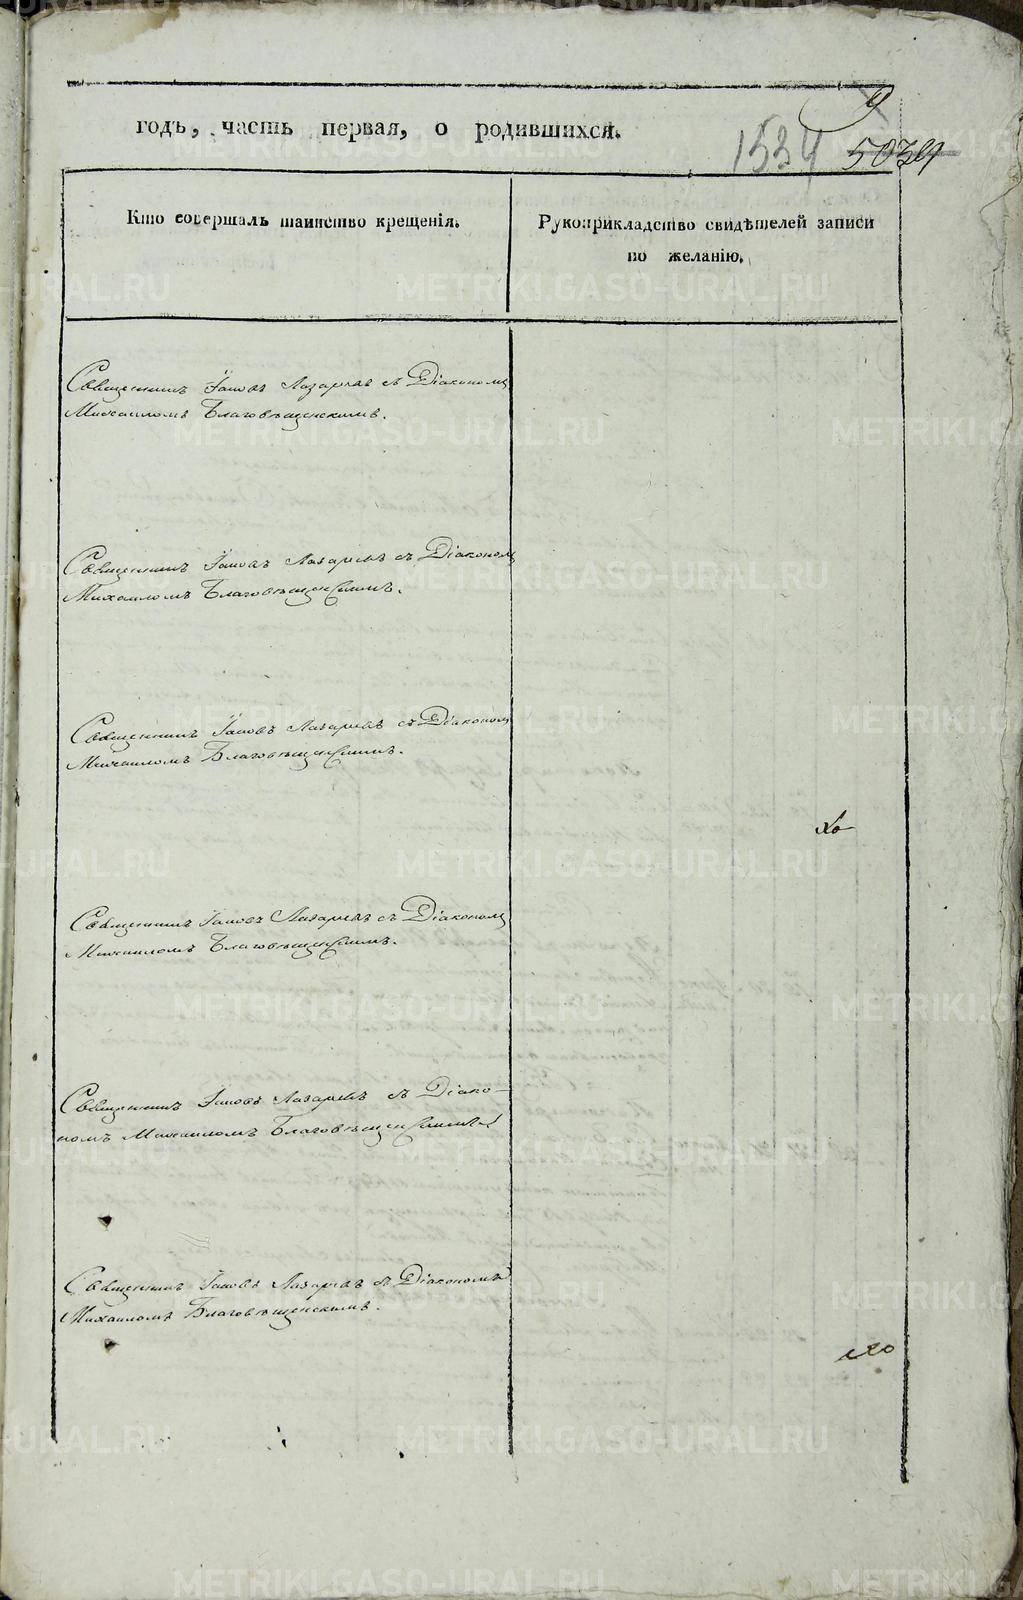 9
годъ, часть первая, о родившихся.
1534
5039
Кто совершалъ таинство крещенія.
Рукоприкладство свидѣтелей записи
по желанію.
Священникъ Іаковъ Лазаревъ съ Діакономъ
Михаиломъ Благовѣщенскимъ.
Священникъ Іаковъ Лазаревъ съ Діакономъ
Михаиломъ Благовѣщенскимъ.
Священникъ Іаковъ Лазаревъ съ Діакономъ
Михаиломъ Благовѣщенскимъ.
Священникъ Іаковъ Лазаревъ съ Діакономъ
Михаиломъ Благовѣщенскимъ.
Священникъ Іаковъ Лазаревъ съ Діако-
номъ Михаиломъ Благовѣщенскимъ.
Священникъ Іаковъ Лазаревъ съ Діакономъ
Михаиломъ Благовѣщенскимъ.
METRIKI.GASO-URAL.RU